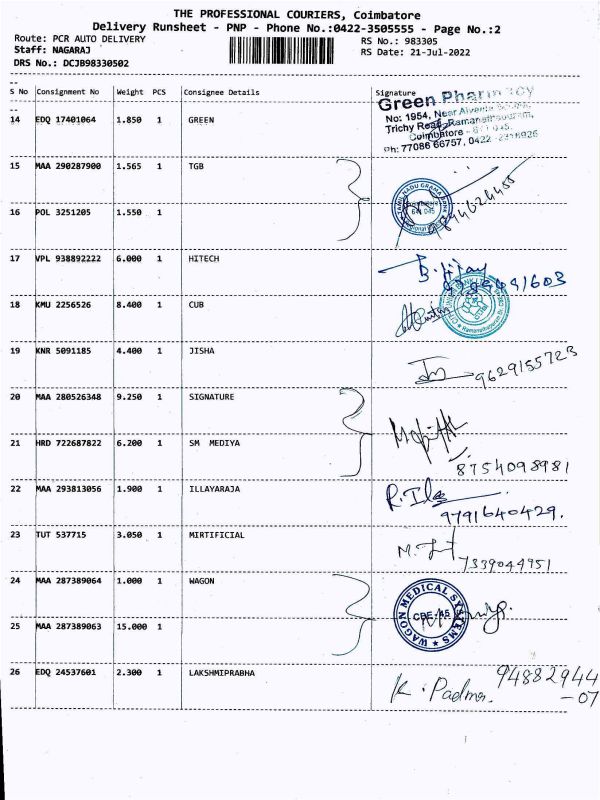 THE PROFESSIONAL COURIERS, Coimbatore
Delivery Runsheet - PNP - Phone No.:0422-3505555 - Page No.:2
Route: PCR AUTO DELIVERY
RS No.: 983305
Staff: NAGARAJ
RS Date: 21-Jul-2022
DRS No.: DCJB98330502
S No Consignment No Weight PCS Consignee Details Signature
14 EDQ 17401064 1.850 1 GREEN
Green Pharmacy
No: 1954, Near
Trichy Road, Ramanathapuram,
Coimbatore - 641 045.
Ph: 77086 66757, 0422
15 MAA 290287900 1.565 1 TGB
TAMIL NADU GRAMA BANK
641 045
16 POL 3251205 1.550 1
17 VPL 938892222 6.000 1 HITECH
18 KMU 2256526 8.400 1 CUB
19 KNR 5091185 4.400 1 JISHA
9629155723
20 MAA 280526348 9.250 1 SIGNATURE
21 HRD 722687822 6.200 1 SM MEDIYA
8754098981
22 MAA 293813056 1.900 1 ILLAYARAJA
9791640429.
23 TUT 537715 3.050 1 MIRTIFICIAL
7339044951
24 MAA 287389064 1.000 1 WAGON
WAGON MEDICAL SYSTEMS
CBE-45
25 MAA 287389063 15.000 1
26 EDQ 24537601 2.300 1 LAKSHMIPRABHA
K. Padma.
94882944
-07